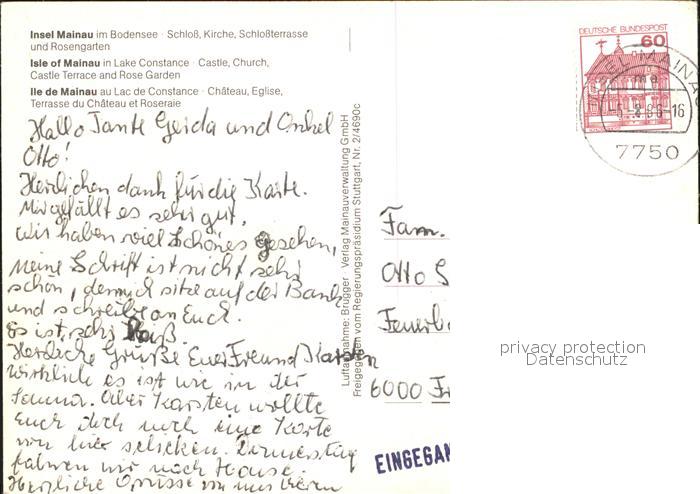 Insel Mainau im Bodensee · Schloß, Kirche, Schloßterrasse
und Rosengarten
Isle of Mainau in Lake Constance · Castle, Church,
Castle Terrace and Rose Garden
Ile de Mainau au Lac de Constance · Château, Eglise,
Terrasse du Château et Roseraie
Hallo Tante Gerda und Onkel
Otto!
Herzlichen dank für die Karte.
Mir gefällt es sehr gut,
wir haben viel Schönes gesehen,
meine Schrift ist nicht sehr
schön, denn ich sitze auf der Bank
und schreibe an Euch.
Es ist sehr Heiß.
Herzliche Grüße Euer Freund Karsten
Wirklich es ist wie in der
Sauna. Aber Karsten wollte
Euch doch noch eine Karte
von hier schicken. Donnerstag
fahren wir nach Hause.
Herzliche Grüsse von uns
Luftaufnahme: Brugger Verlag Mainauverwaltung GmbH
Freigegeben vom Regierungspräsidium Stuttgart, Nr. 2/4690c
DEUTSCHE BUNDESPOST
60
INSEL MAINAU
-16
7750
Fam.
Otto S
Feuerb
6000 Fr
EINGEGAN
privacy protection
Datenschutz